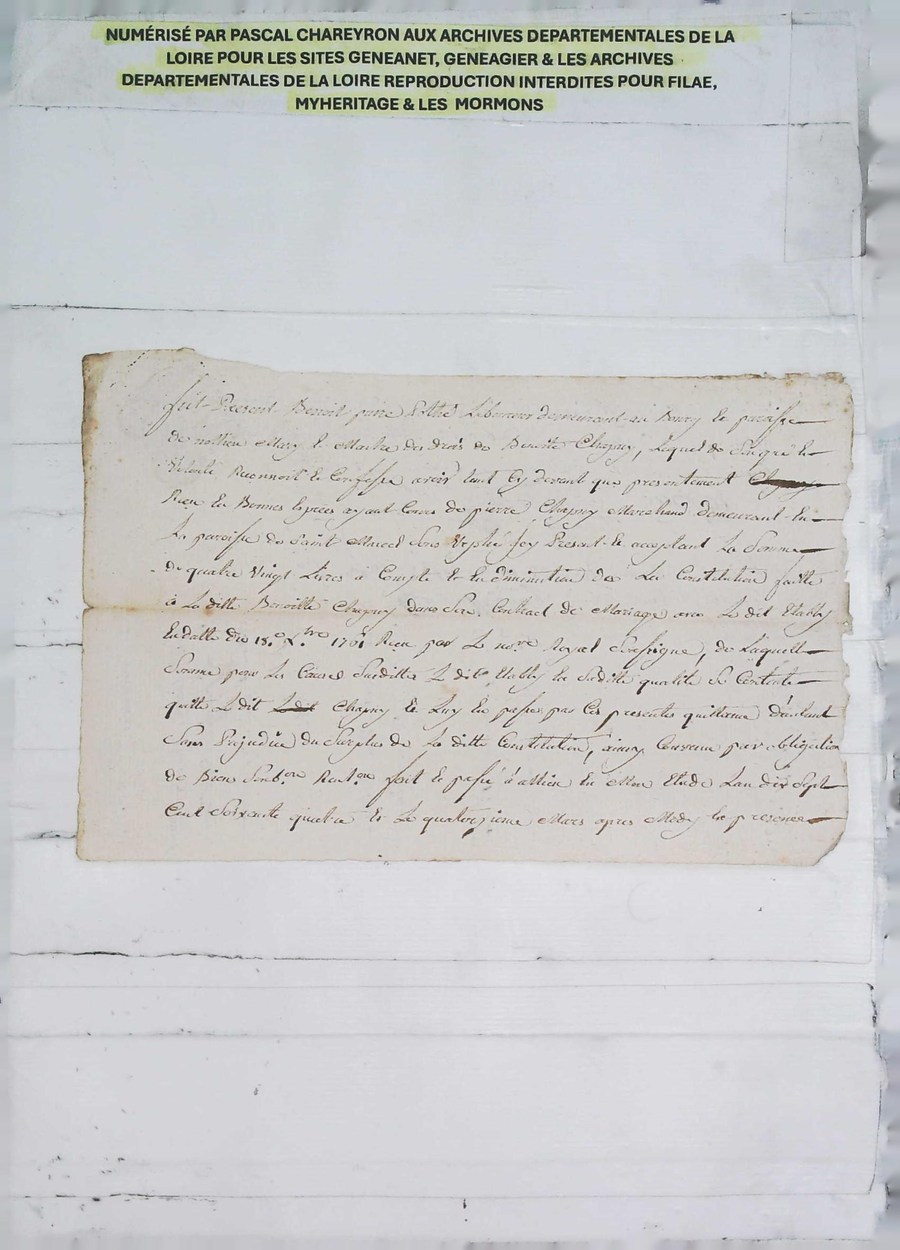 NUMÉRISÉ PAR PASCAL CHAREYRON AUX ARCHIVES DEPARTEMENTALES DE LA
LOIRE POUR LES SITES GENEANET, GENEAGIER & LES ARCHIVES
DEPARTEMENTALES DE LA LOIRE REPRODUCTION INTERDITES POUR FILAE,
MYHERITAGE & LES MORMONS
fut Present Benoit Laboureur demeurant au Bourg et paroisse
de Mary et Maitre des drois de Benoite Chapuy, Lequel de Son gre et
Volonté Reconnoit et Confesse avoir tant Cy devant que presentement
Rieu et Bonnes Especes ayant Cours de pierre Chapuy Marchand demeurant En
La paroisse de Saint Marcel Sous Present et acceptant La Somme
de quatre Vingt Livres à Compte et En diminution de La Constitution faitte
à La ditte Benoitte Chapuy dans Son Contract de Mariage avec Le dit Etably
En datte du 18.e Rieu par Le no.re Royal Soussigne, de Laquelle
Somme pour Les Causes Susdittes Le dit Etably En Saditte qualité Se Contente
quitte Le dit Chapuy et Luy En passe par Ces presentes quittance
Sans Prejudice du Surplus de La ditte Constitution, ainsy Convenu par obligation
de Bien fait et passé à En Mon Etude L'an dix Sept
Cent Soixante quatre et Le quatorzieme Mars apres Midy En presence